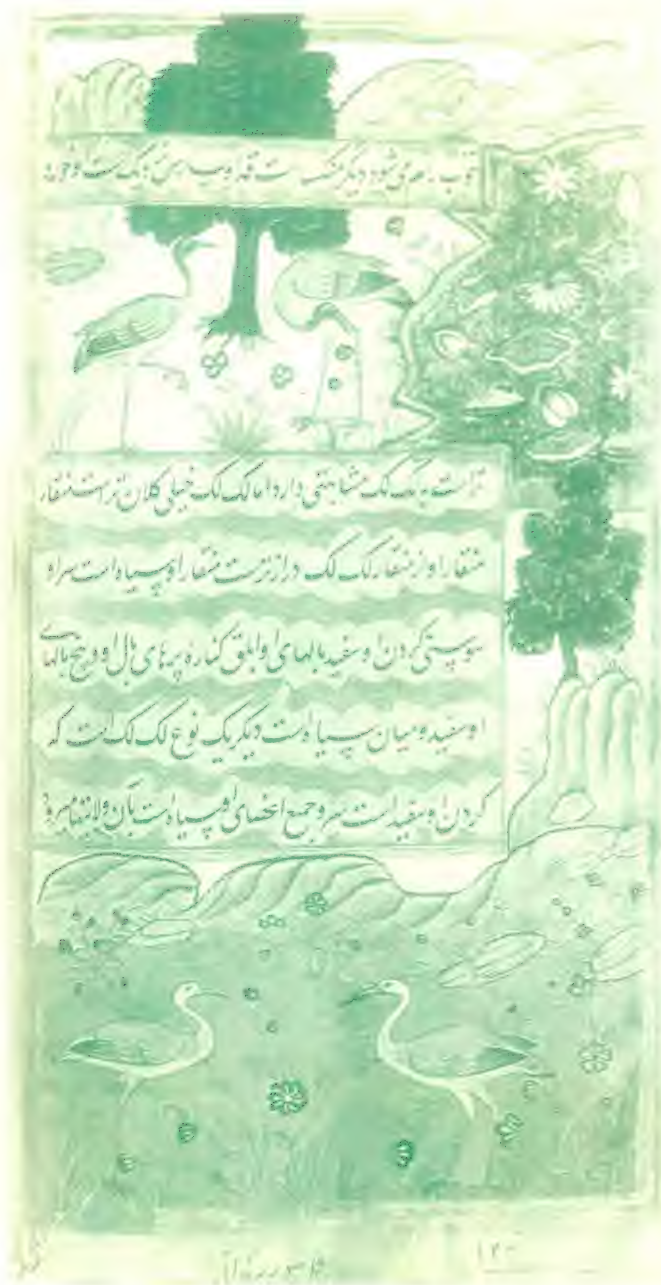 خوب طعمه می‌شود دیگر منکسه است قد او به سارس نزدیک است و خورد
تر است به لک لک مشابهتی دارد اما لک لک خیلی کلان تر است منقار
منقار او از منقار لک لک درازتر است منقار او سیاه است سر او
سوسنی گردن او سفید بالهای او ابلق کناره پرهای بال او و بیخ بالهای
او سفید و میان سیاه است دیگر یک نوع لک لک است که
گردن او سفید است سر و جمیع اعضای او سیاه است بآن ولایتها میرود